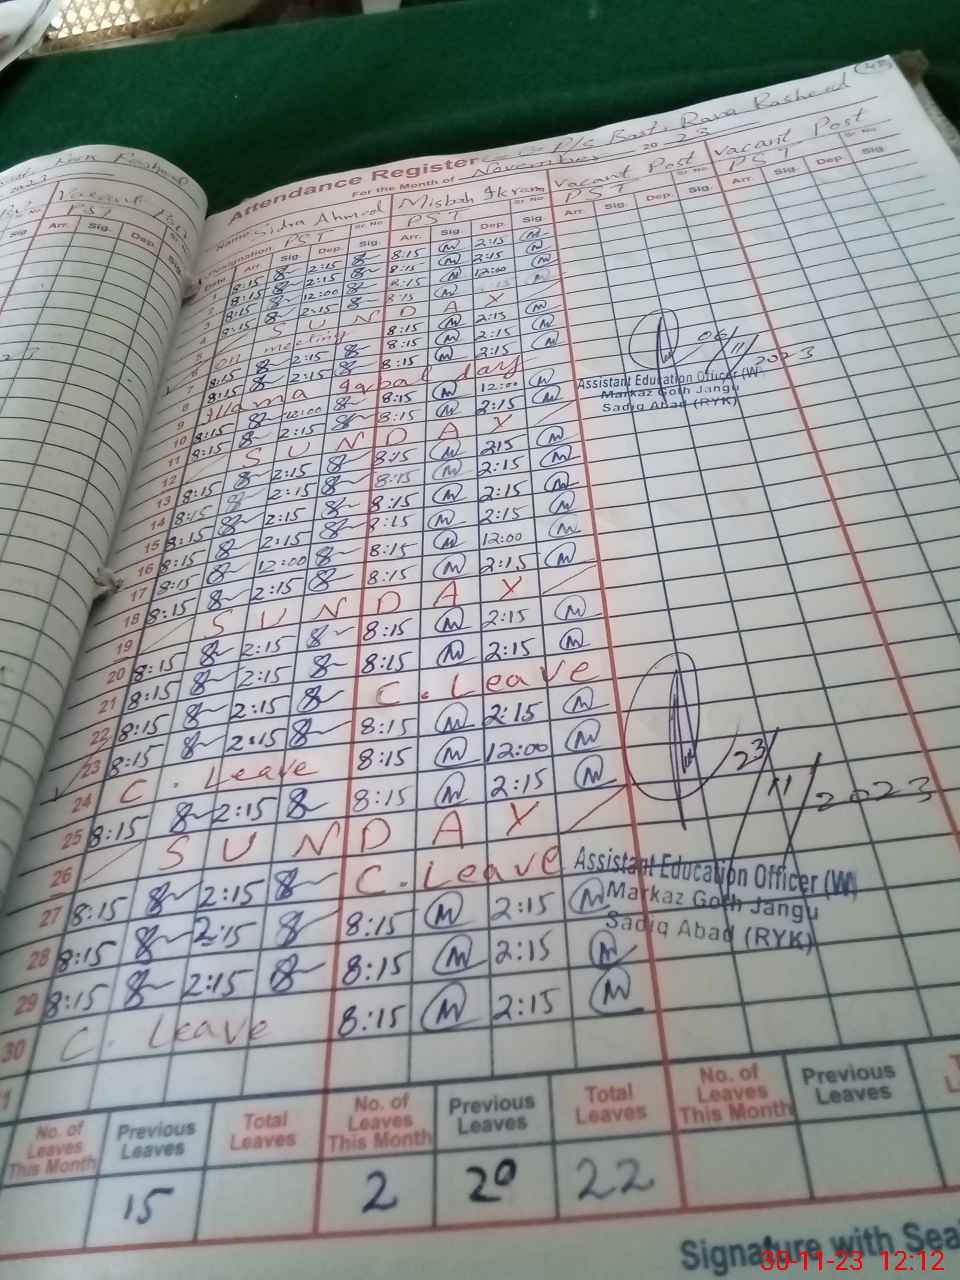 45
Attendance Register P/s Basti Rana Rasheed
For the Month of November 20 23
Name Sidra Ahmed Misbah Ikram Vacant Post Vacant Post
Designation PST PST PST PST
Date Arr. Sig. Dep. Sr. No Arr. Sig. Dep. Sr. No Arr. Sig. Dep. Sr. No Arr. Sig. Dep. Sr. No Sig.
1 8:15 2:15 8:15 2:15
2 8:15 2:15 8:15 2:15
3 8:15 12:00 8:15 12:00
4 8:15 8:15
5 SUNDAY
6 On meeting 8:15 2:15
7 8:15 2:15 8:15 2:15
8 8:15 2:15 8:15 2:15
9 Iqbal day
10 8:15 12:00 8:15 12:00
11 8:15 2:15 8:15 2:15
12 SUNDAY
13 8:15 2:15 8:15 2:15
14 8:15 2:15 8:15 2:15
15 8:15 2:15 8:15 2:15
16 8:15 2:15 8:15 2:15
17 8:15 12:00 8:15 12:00
18 8:15 2:15 8:15 2:15
19 SUNDAY
20 8:15 2:15 8:15 2:15
21 8:15 2:15 8:15 2:15
22 8:15 2:15 C. Leave
23 8:15 2:15 8:15 2:15
24 C. Leave 8:15 12:00
25 8:15 2:15 8:15 2:15
26 SUNDAY
27 8:15 2:15 C. Leave
28 8:15 2:15 8:15 2:15
29 8:15 2:15 8:15 2:15
30 C. Leave 8:15 2:15
06/11/2023
Assistant Education Officer (W)
Markaz Goth Jangu
Sadiq Abad (RYK)
23/11/2023
Assistant Education Officer (W)
Markaz Goth Jangu
Sadiq Abad (RYK)
No. of Leaves This Month Previous Leaves Total Leaves No. of Leaves This Month Previous Leaves Total Leaves No. of Leaves This Month Previous Leaves
15 2 20 22
Signature with Sea
30-11-23 12:12